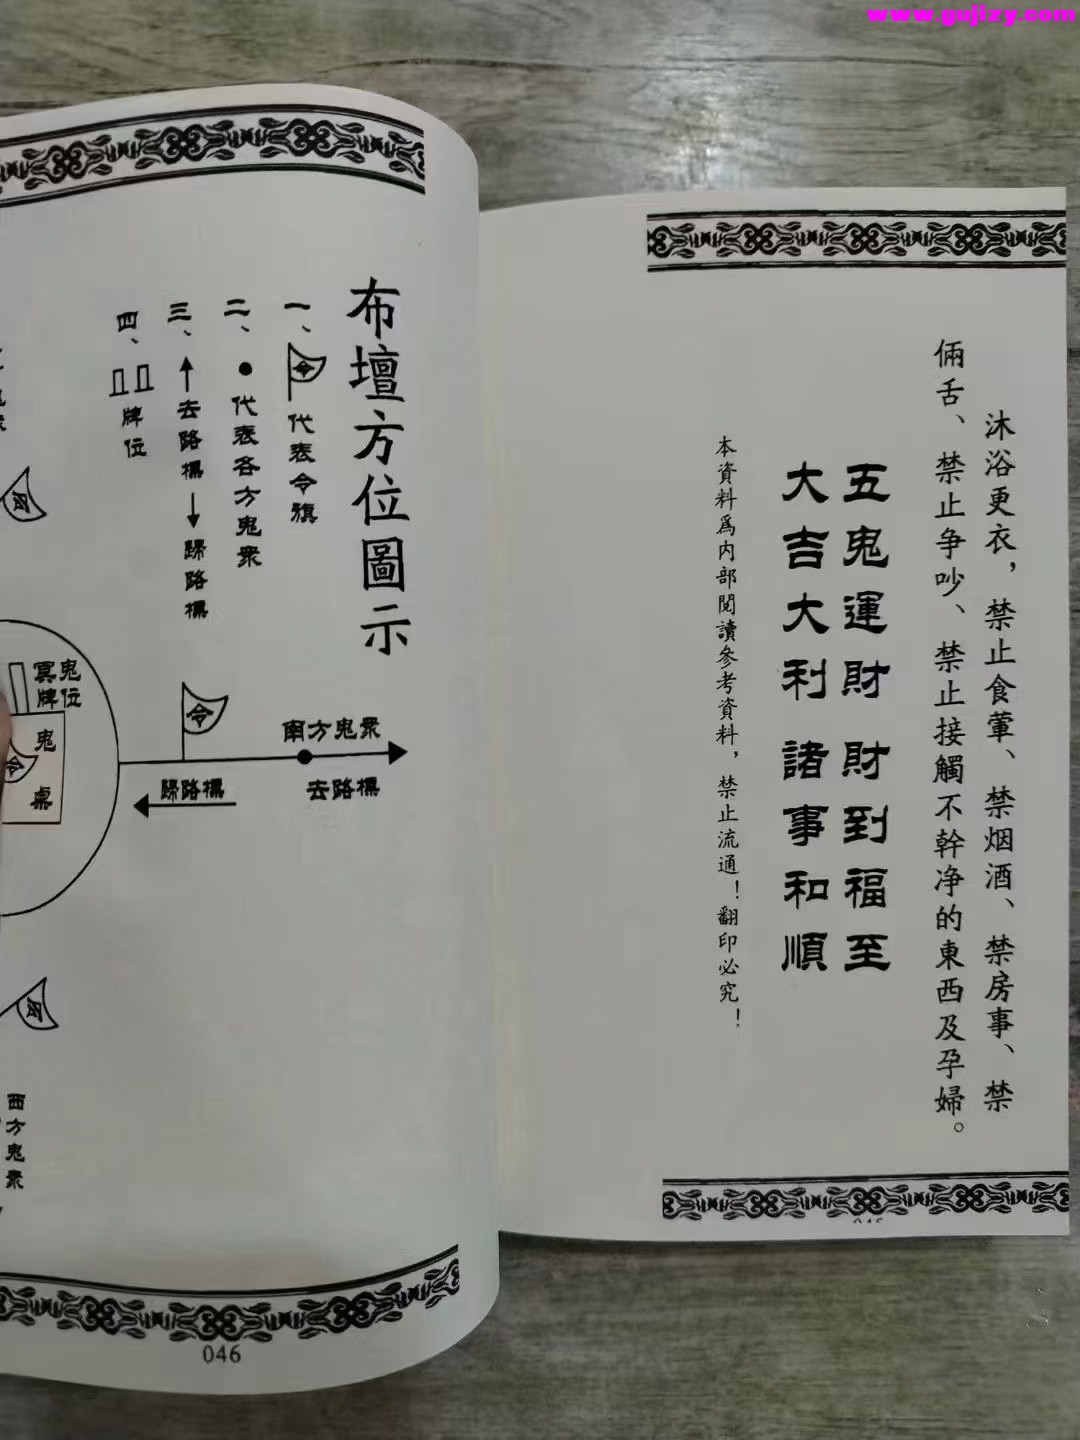 www.gujizy.com
沐浴更衣，禁止食葷、禁烟酒、禁房事、禁
倆舌、禁止争吵、禁止接觸不幹净的東西及孕婦。
五鬼運財 財到福至
大吉大利 諸事和順
本資料爲内部閲讀參考資料，禁止流通！翻印必究！
布壇方位圖示
一、令 代表令旗
二、●代表各方鬼衆
三、↑去路標↓歸路標
四、牌位
令
南方鬼衆
去路標
歸路標
鬼位
冥牌
鬼桌
令
令
令
西方鬼衆
046